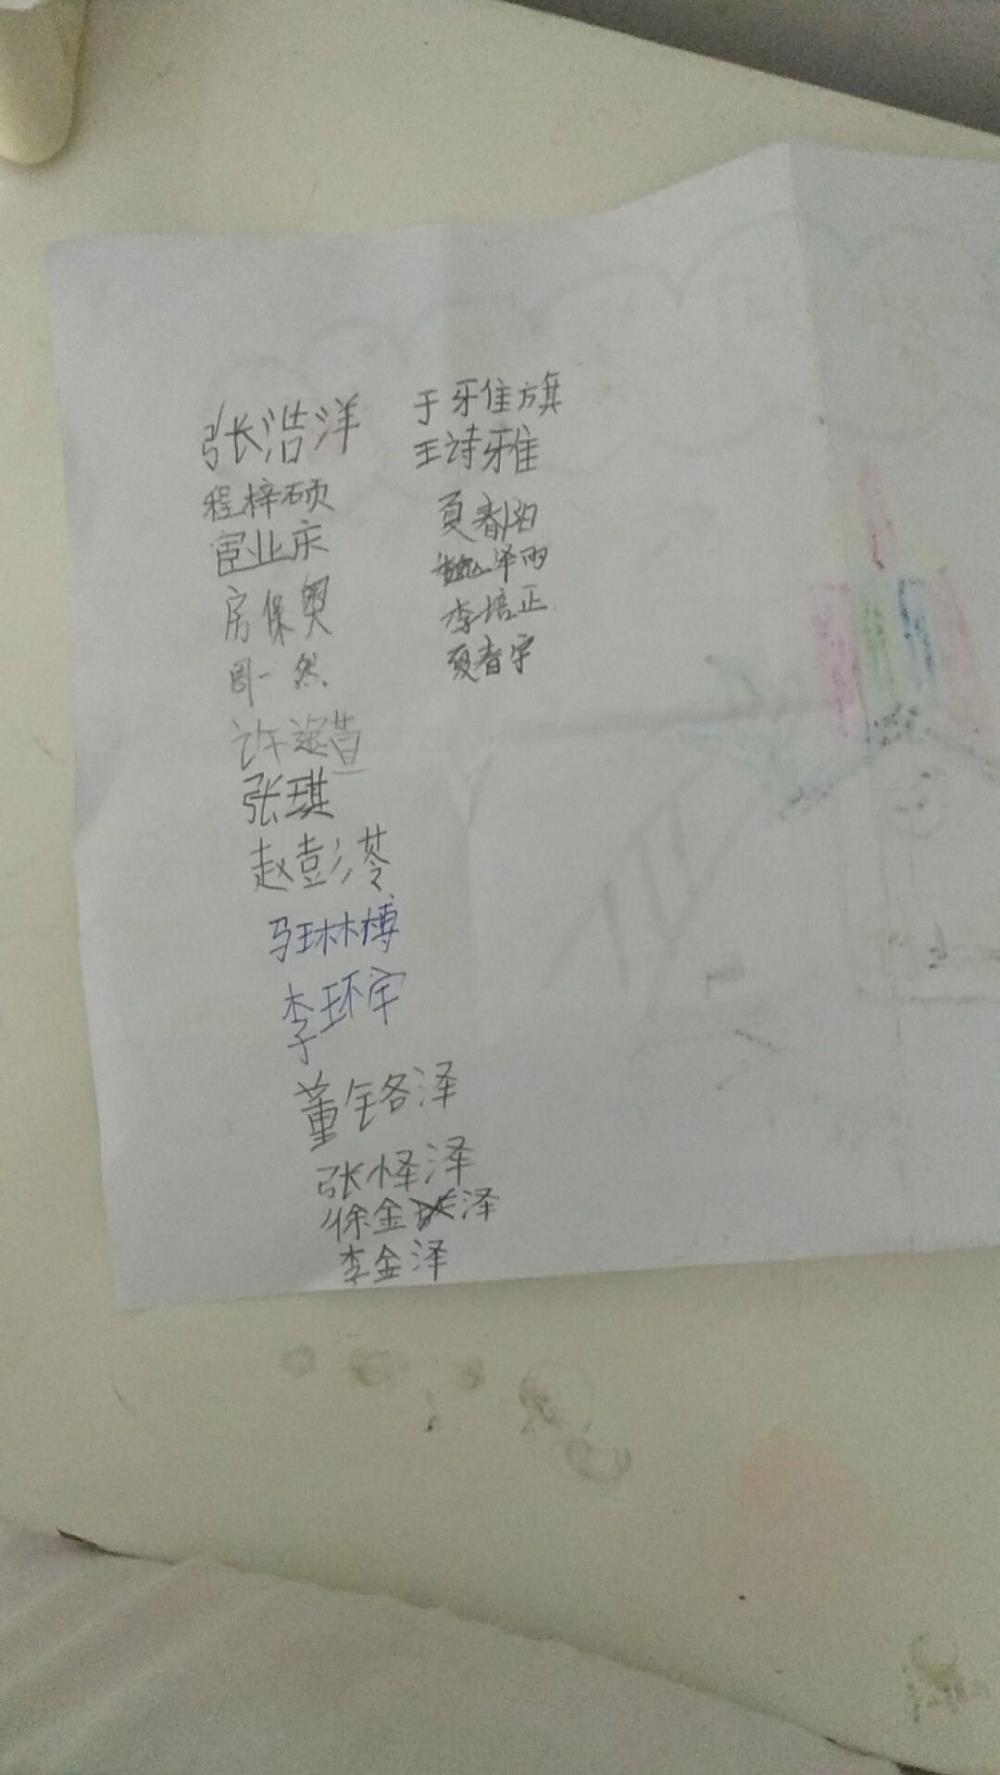 张浩洋
程梓硕
宦业庆
房保奥
周一然
许
张琪
赵彭苓
马琳博
李环宇
董铭泽
张怿泽
徐金泽
李金泽
于雅旗
王诗雅
夏春
魏泽雨
李培正
夏春宇